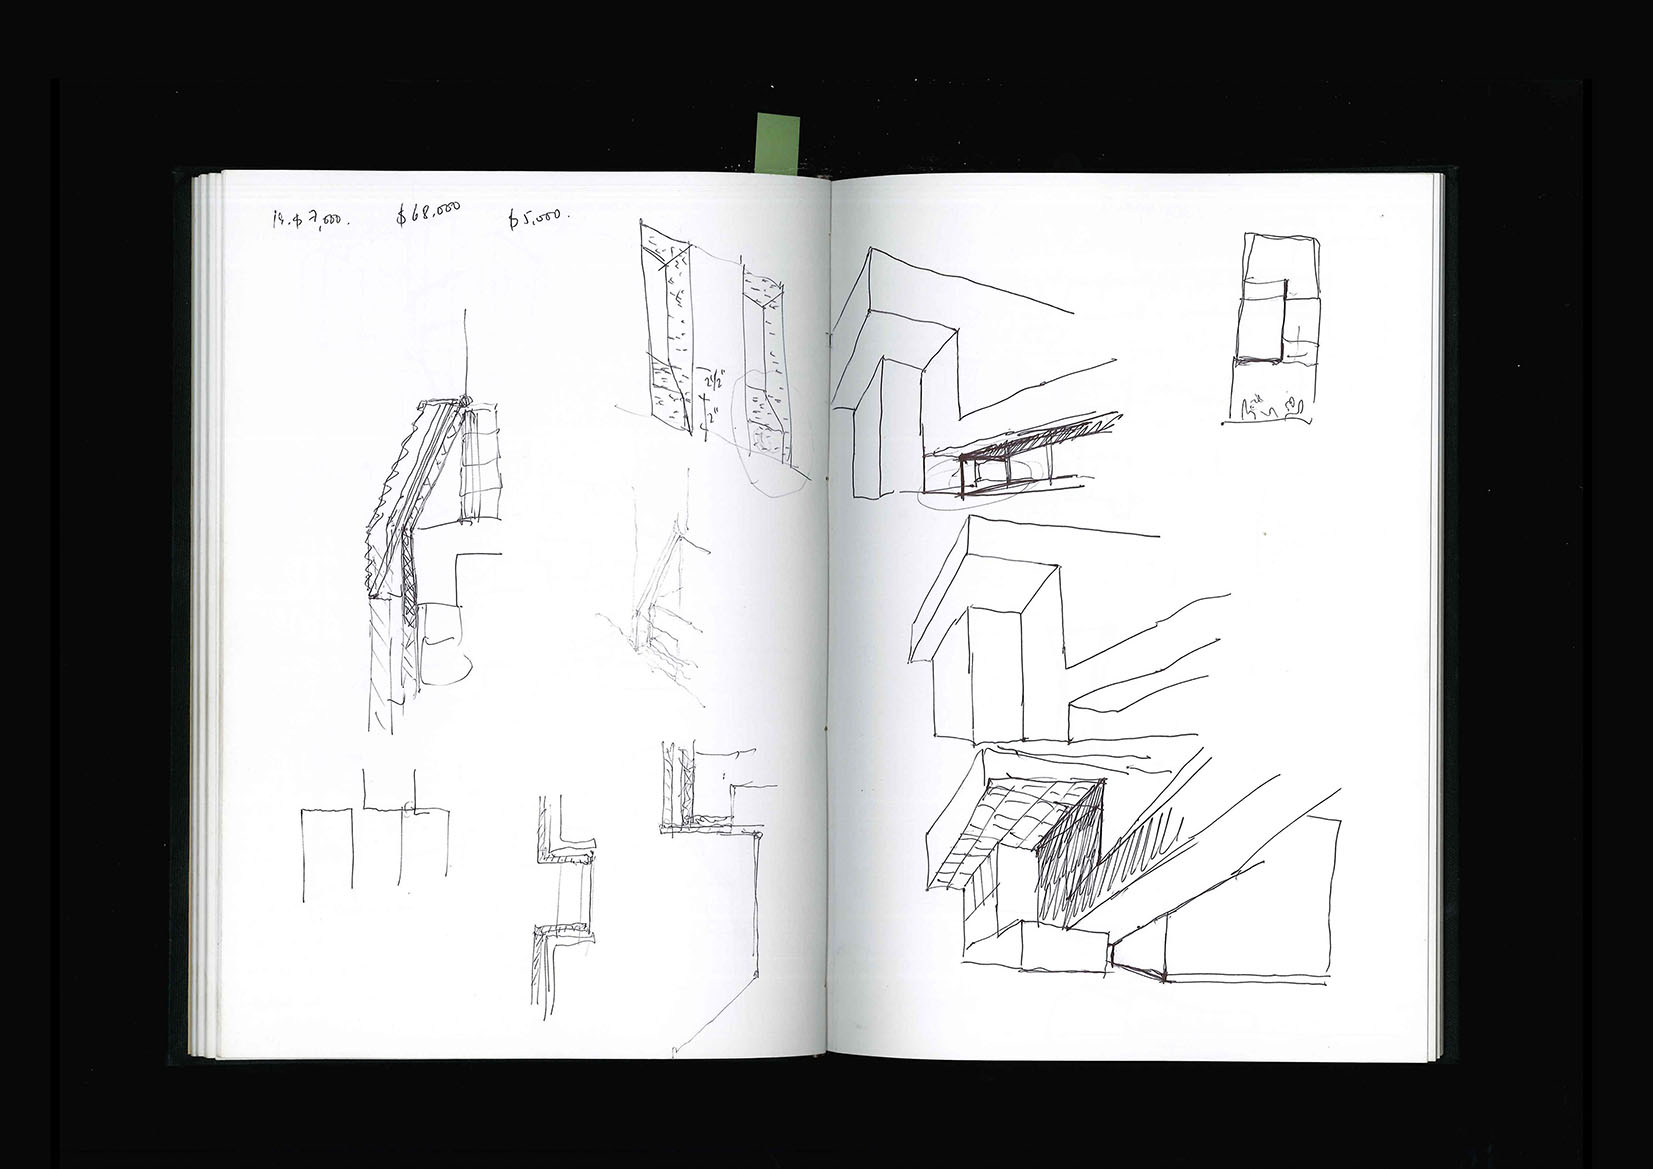 $7,000.
$68,000
$5,000.
2½"
2"